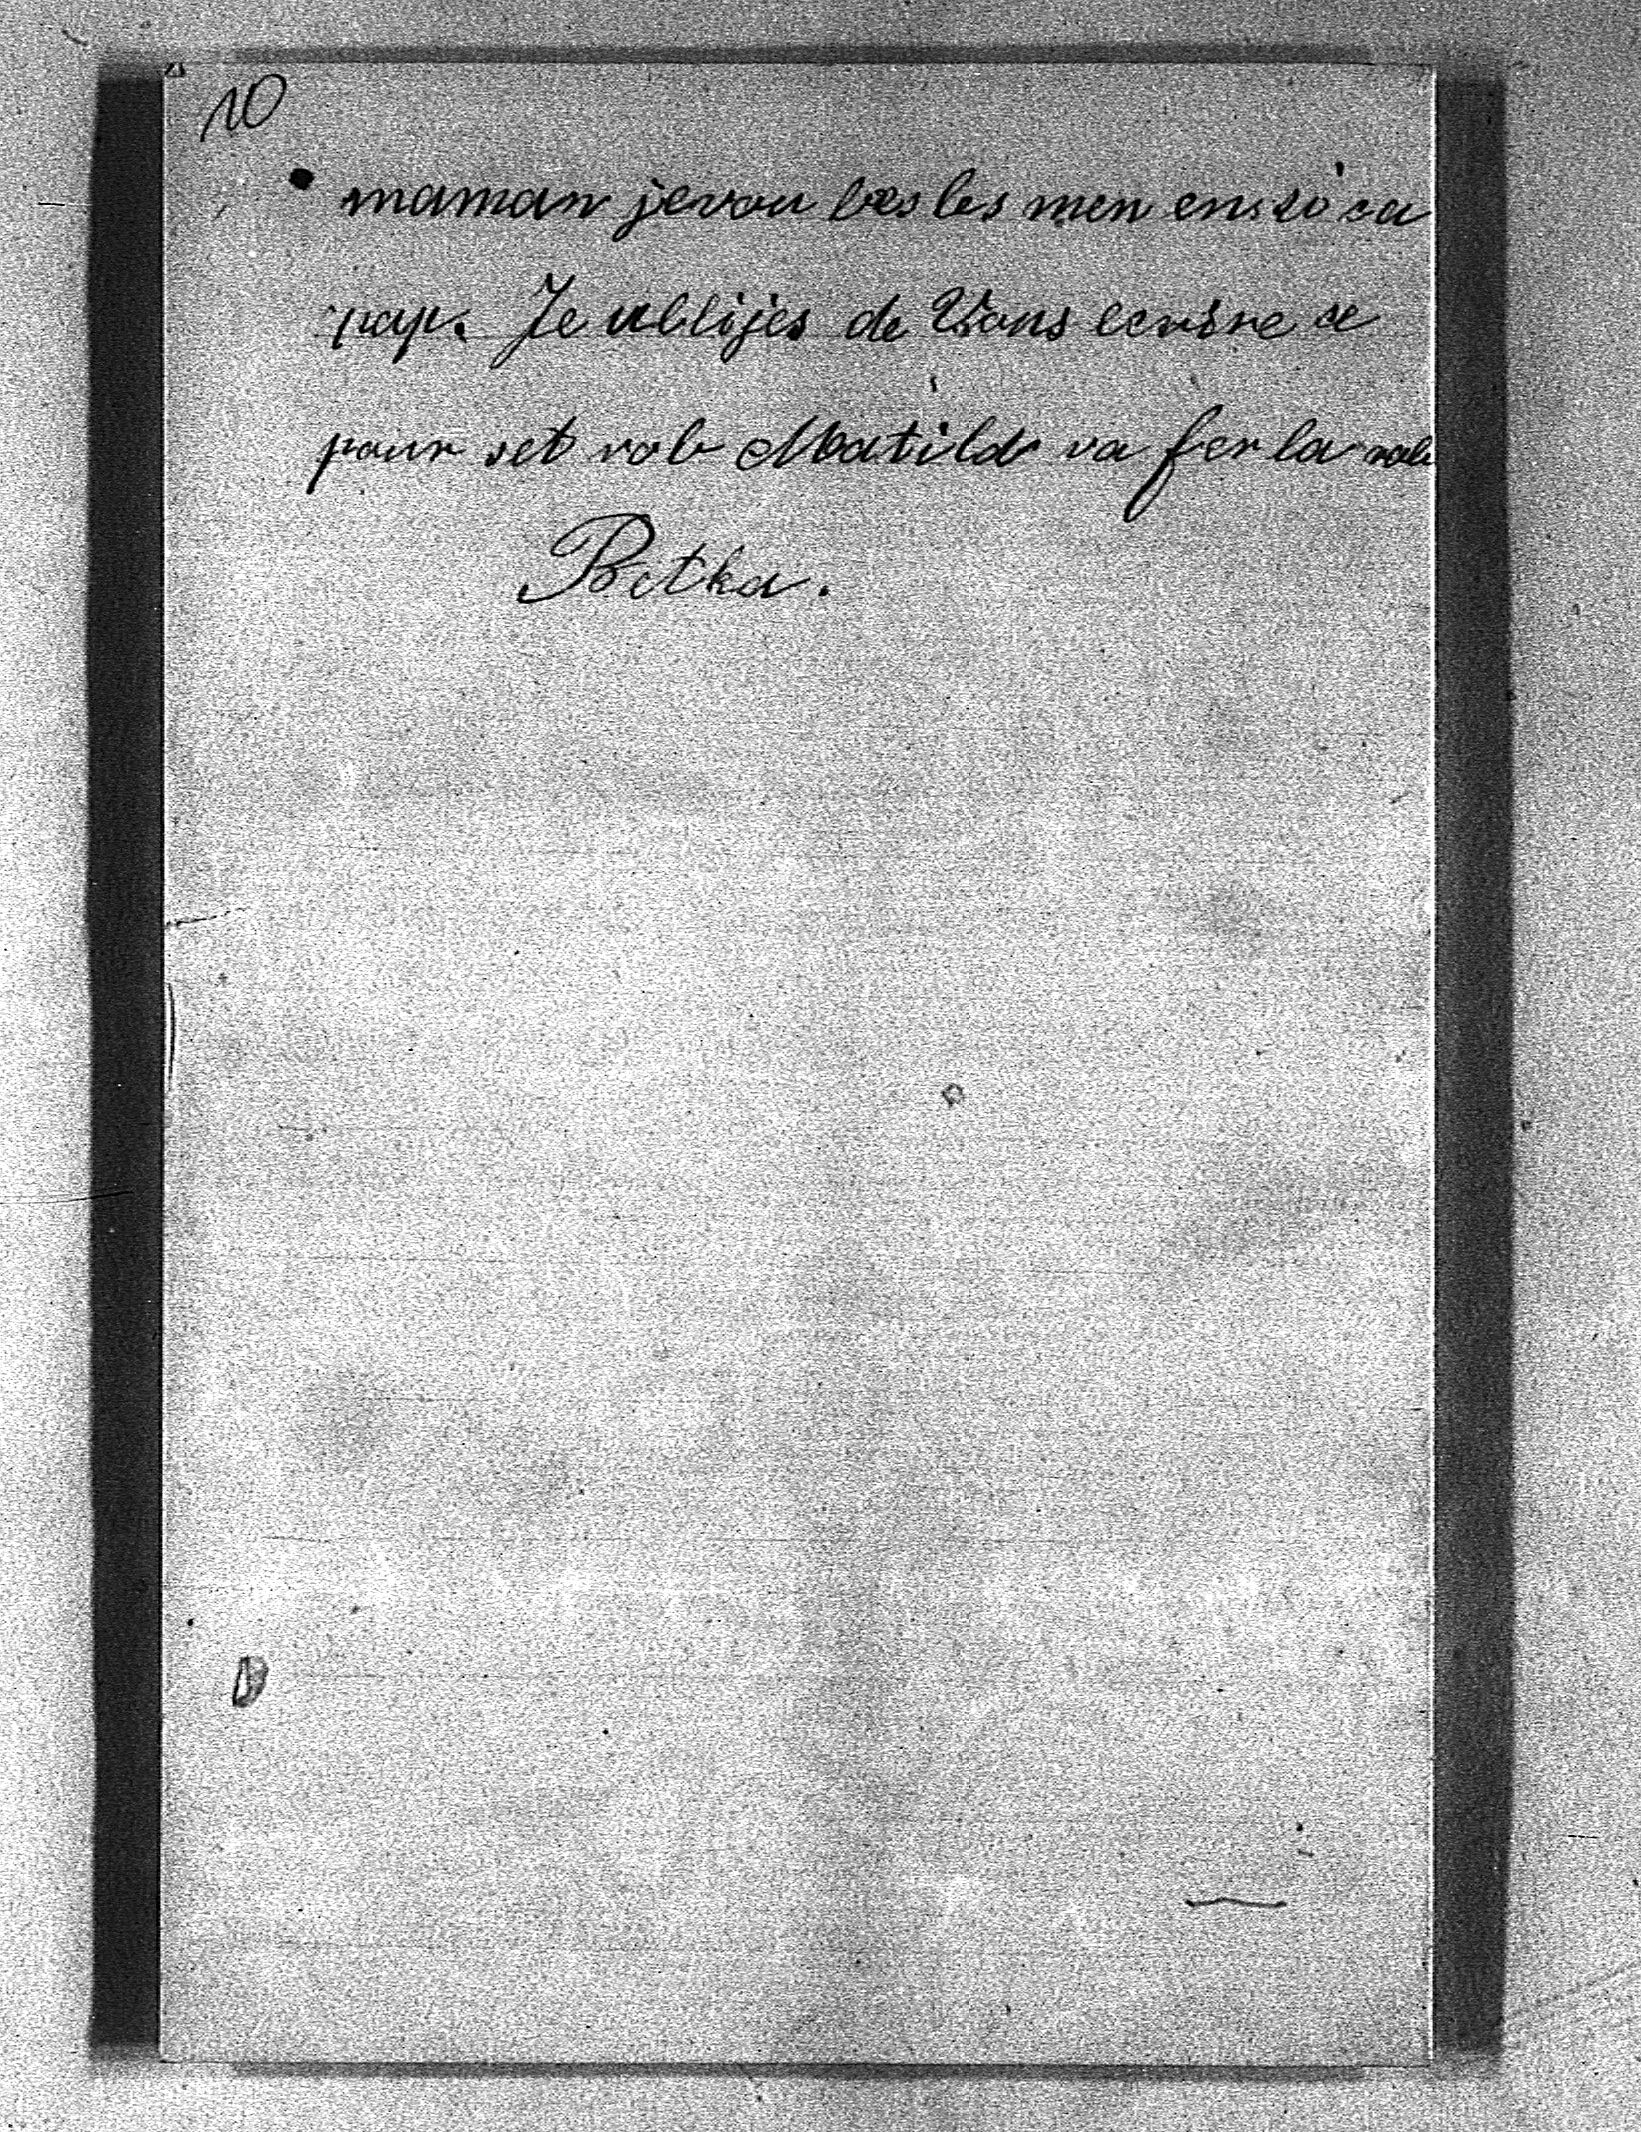 10
maman je vou bes les men ensi ca
pap. Je ublijes de Vous ecrire ce
pour set rob Matild va fer la rob
Betka.